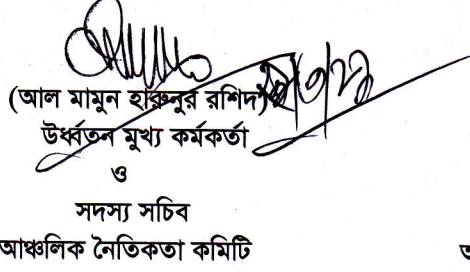 (আল মামুন হারুনুর রশিদ)
উর্ধ্বতন মুখ্য কর্মকর্তা
ও
সদস্য সচিব
আঞ্চলিক নৈতিকতা কমিটি